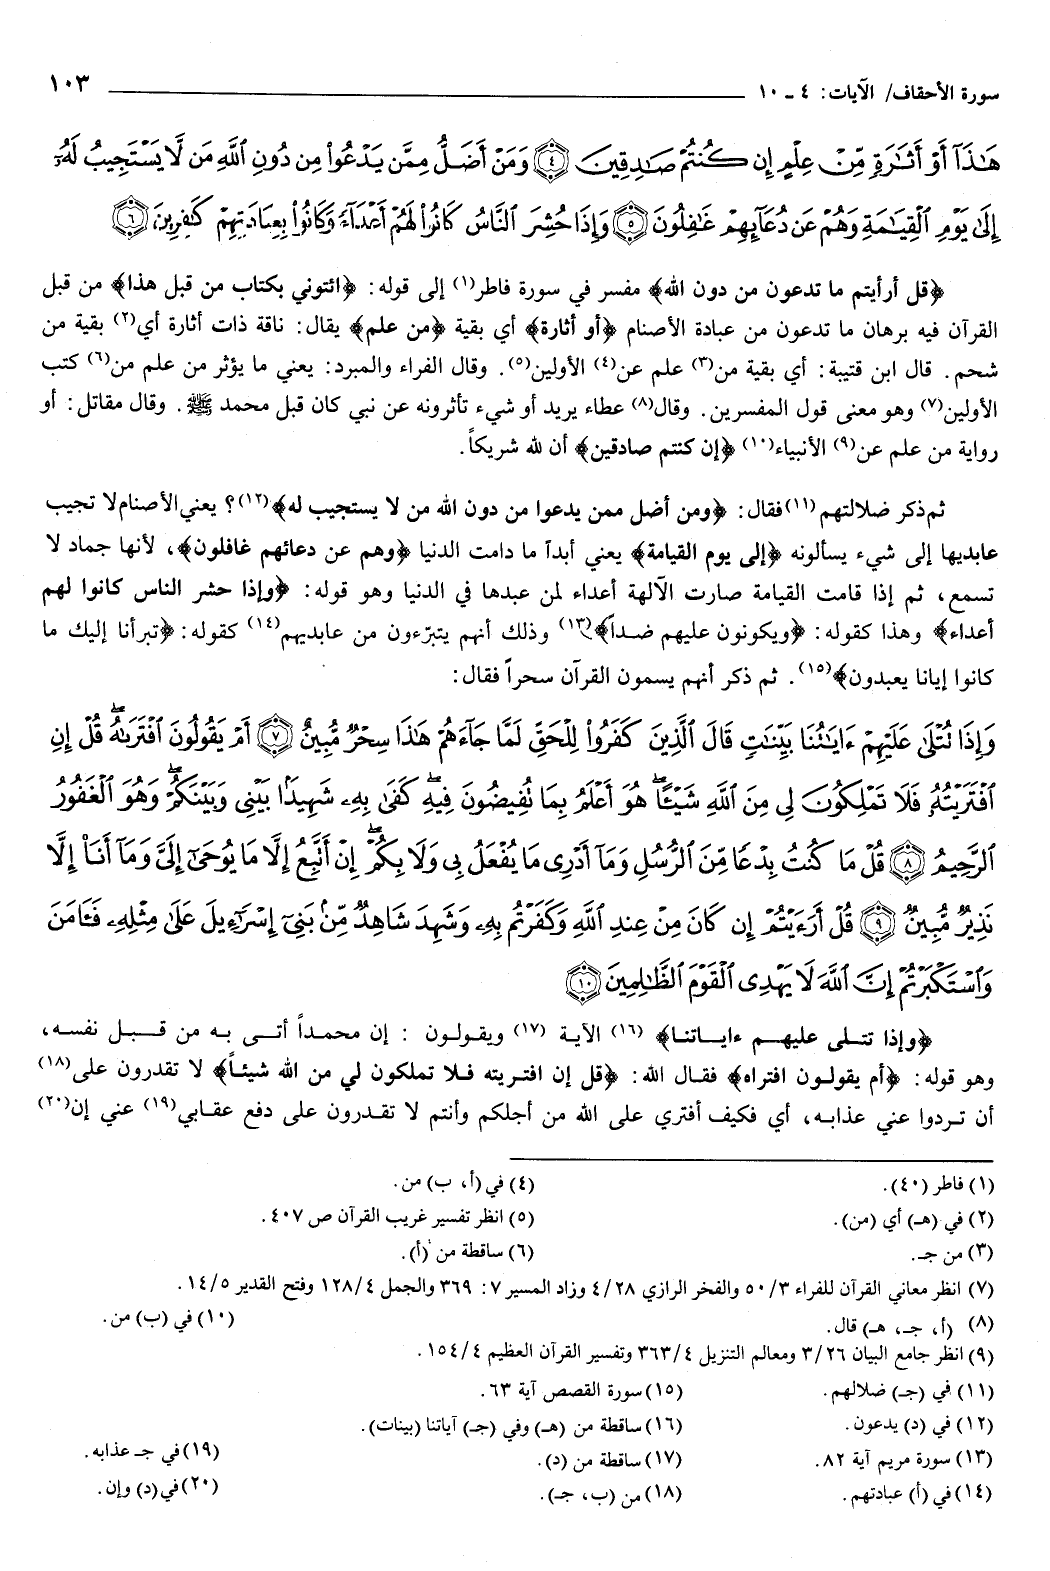 سورة الأحقاف/ الآيات: ٤ - ١٠ ١٠٣
هَٰذَآ أَوْ أَثَٰرَةٍ مِّنْ عِلْمٍ إِن كُنتُمْ صَٰدِقِينَ ﴿٤﴾ وَمَنْ أَضَلُّ مِمَّن يَدْعُوا۟ مِن دُونِ ٱللَّهِ مَن لَّا يَسْتَجِيبُ لَهُۥٓ
إِلَىٰ يَوْمِ ٱلْقِيَٰمَةِ وَهُمْ عَن دُعَآئِهِمْ غَٰفِلُونَ ﴿٥﴾ وَإِذَا حُشِرَ ٱلنَّاسُ كَانُوا۟ لَهُمْ أَعْدَآءً وَكَانُوا۟ بِعِبَادَتِهِمْ كَٰفِرِينَ ﴿٦﴾
﴿قل أرأيتم ما تدعون من دون الله﴾ مفسر في سورة فاطر(١) إلى قوله: ﴿ائتوني بكتاب من قبل هذا﴾ من قبل
القرآن فيه برهان ما تدعون من عبادة الأصنام ﴿أو أثارة﴾ أي بقية ﴿من علم﴾ يقال: ناقة ذات أثارة أي(٢) بقية من
شحم. قال ابن قتيبة: أي بقية من(٣) علم عن(٤) الأولين(٥). وقال الفراء والمبرد: يعني ما يؤثر من علم من(٦) كتب
الأولين(٧) وهو معنى قول المفسرين. وقال(٨) عطاء يريد أو شيء تأثرونه عن نبي كان قبل محمد ﷺ. وقال مقاتل: أو
رواية من علم عن(٩) الأنبياء(١٠) ﴿إن كنتم صادقين﴾ أن لله شريكاً.
ثم ذكر ضلالتهم(١١) فقال: ﴿ومن أضل ممن يدعوا من دون الله من لا يستجيب له﴾(١٢)؟ يعني الأصنام لا تجيب
عابديها إلى شيء يسألونه ﴿إلى يوم القيامة﴾ يعني أبداً ما دامت الدنيا ﴿وهم عن دعائهم غافلون﴾، لأنها جماد لا
تسمع، ثم إذا قامت القيامة صارت الآلهة أعداء لمن عبدها في الدنيا وهو قوله: ﴿وإذا حشر الناس كانوا لهم
أعداء﴾ وهذا كقوله: ﴿ويكونون عليهم ضداً﴾(١٣) وذلك أنهم يتبرّءون من عابديهم(١٤) كقوله: ﴿تبرأنا إليك ما
كانوا إيانا يعبدون﴾(١٥). ثم ذكر أنهم يسمون القرآن سحراً فقال:
وَإِذَا تُتْلَىٰ عَلَيْهِمْ ءَايَٰتُنَا بَيِّنَٰتٍ قَالَ ٱلَّذِينَ كَفَرُوا۟ لِلْحَقِّ لَمَّا جَآءَهُمْ هَٰذَا سِحْرٌ مُّبِينٌ ﴿٧﴾ أَمْ يَقُولُونَ ٱفْتَرَىٰهُ ۖ قُلْ إِنِ
ٱفْتَرَيْتُهُۥ فَلَا تَمْلِكُونَ لِى مِنَ ٱللَّهِ شَيْـًٔا ۖ هُوَ أَعْلَمُ بِمَا تُفِيضُونَ فِيهِ ۖ كَفَىٰ بِهِۦ شَهِيدًۢا بَيْنِى وَبَيْنَكُمْ ۖ وَهُوَ ٱلْغَفُورُ
ٱلرَّحِيمُ ﴿٨﴾ قُلْ مَا كُنتُ بِدْعًا مِّنَ ٱلرُّسُلِ وَمَآ أَدْرِى مَا يُفْعَلُ بِى وَلَا بِكُمْ ۖ إِنْ أَتَّبِعُ إِلَّا مَا يُوحَىٰٓ إِلَىَّ وَمَآ أَنَا۠ إِلَّا
نَذِيرٌ مُّبِينٌ ﴿٩﴾ قُلْ أَرَءَيْتُمْ إِن كَانَ مِنْ عِندِ ٱللَّهِ وَكَفَرْتُم بِهِۦ وَشَهِدَ شَاهِدٌ مِّنۢ بَنِىٓ إِسْرَٰٓءِيلَ عَلَىٰ مِثْلِهِۦ فَـَٔامَنَ
وَٱسْتَكْبَرْتُمْ إِنَّ ٱللَّهَ لَا يَهْدِى ٱلْقَوْمَ ٱلظَّٰلِمِينَ ﴿١٠﴾
﴿وإذا تتلى عليهم ءاياتنا﴾ (١٦) الآية (١٧) ويقولون : إن محمداً أتى به من قبل نفسه،
وهو قوله: ﴿أم يقولون افتراه﴾ فقال الله: ﴿قل إن افتريته فلا تملكون لي من الله شيئاً﴾ لا تقدرون على(١٨)
أن تردوا عني عذابه، أي فكيف أفتري على الله من أجلكم وأنتم لا تقدرون على دفع عقابي(١٩) عني إن(٢٠)
(١) فاطر (٤٠). (٤) في (أ، ب) من.
(٢) في (هـ) أي (من). (٥) انظر تفسير غريب القرآن ص ٤٠٧.
(٣) من جـ. (٦) ساقطة من (أ).
(٧) انظر معاني القرآن للفراء ٥٠/٣ والفخر الرازي ٤/٢٨ وزاد المسير ٧: ٣٦٩ والجمل ١٢٨/٤ وفتح القدير ١٤/٥.
(٨) (أ، جـ، هـ) قال. (١٠) في (ب) من.
(٩) انظر جامع البيان ٣/٢٦ ومعالم التنزيل ٣٦٣/٤ وتفسير القرآن العظيم ١٥٤/٤.
(١١) في (جـ) ضلالهم. (١٥) سورة القصص آية ٦٣.
(١٢) في (د) يدعون. (١٦) ساقطة من (هـ) وفي (جـ) آياتنا (بينات).
(١٣) سورة مريم آية ٨٢. (١٧) ساقطة من (د). (١٩) في جـ عذابه.
(١٤) في (أ) عبادتهم. (١٨) من (ب، جـ). (٢٠) في (د) وإن.